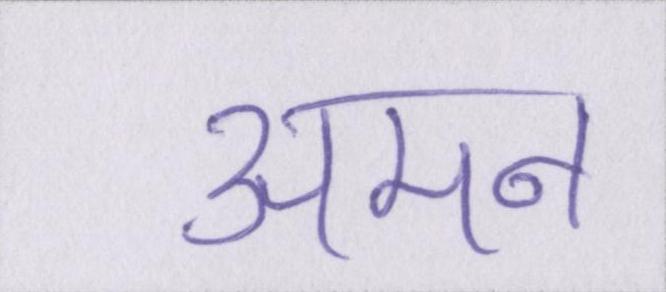 अमन